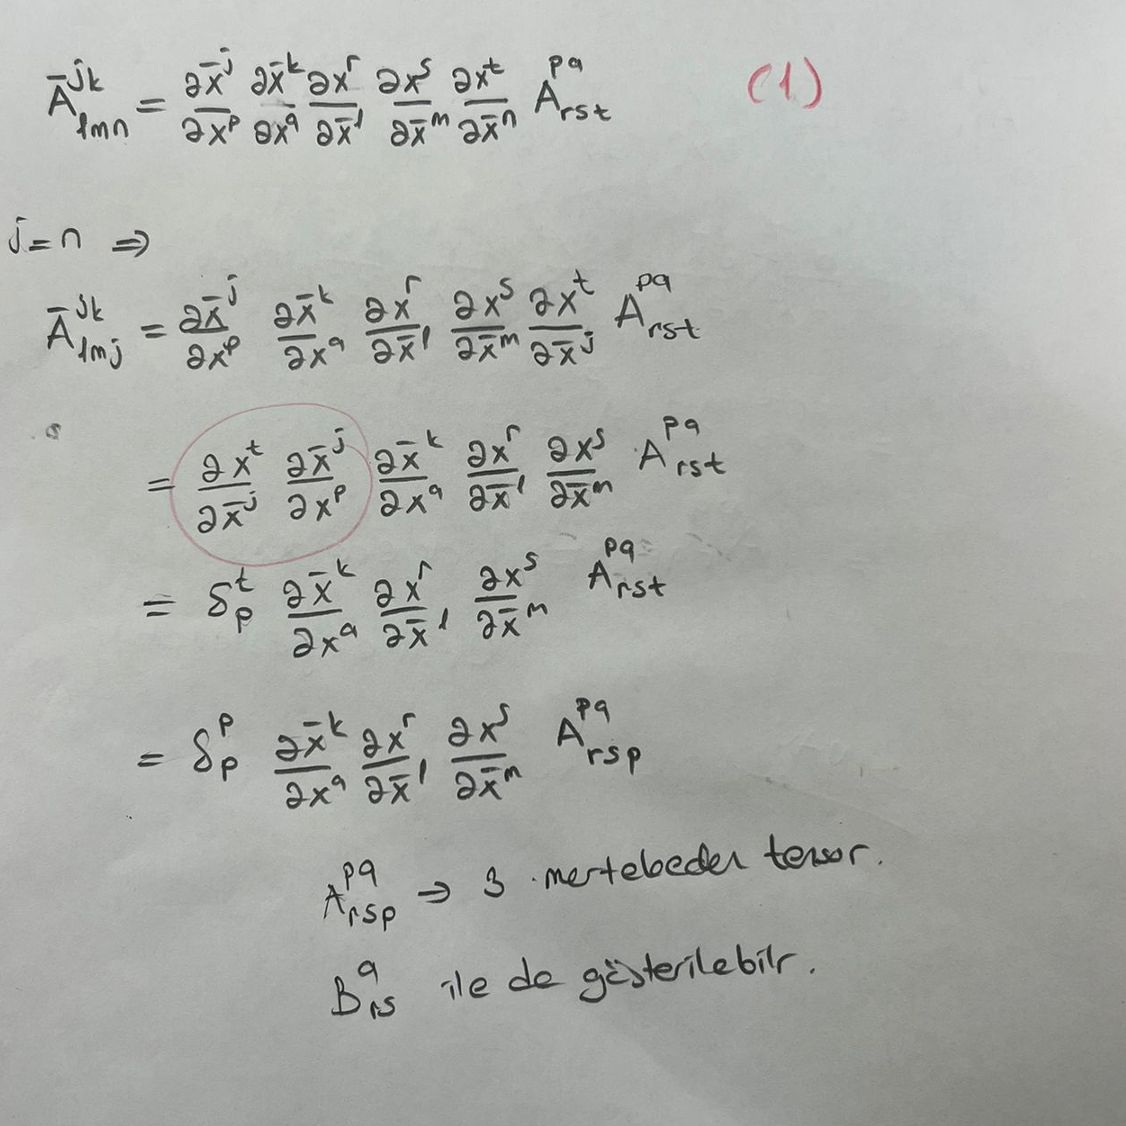 Ā^{jk}_{lmn} = ∂x̄^j/∂x^p ∂x̄^k/∂x^q ∂x^r/∂x̄^l ∂x^s/∂x̄^m ∂x^t/∂x̄^n A^{pq}_{rst} (1)
j = n ⇒
Ā^{jk}_{lmj} = ∂x̄^j/∂x^p ∂x̄^k/∂x^q ∂x^r/∂x̄^l ∂x^s/∂x̄^m ∂x^t/∂x̄^j A^{pq}_{rst}
= ∂x^t/∂x̄^j ∂x̄^j/∂x^p ∂x̄^k/∂x^q ∂x^r/∂x̄^l ∂x^s/∂x̄^m A^{pq}_{rst}
= δ^t_p ∂x̄^k/∂x^q ∂x^r/∂x̄^l ∂x^s/∂x̄^m A^{pq}_{rst}
= δ^p_p ∂x̄^k/∂x^q ∂x^r/∂x̄^l ∂x^s/∂x̄^m A^{pq}_{rsp}
A^{pq}_{rsp} → 3 . mertebeden tensor.
B^q_{rs} ile de gösterilebilr.